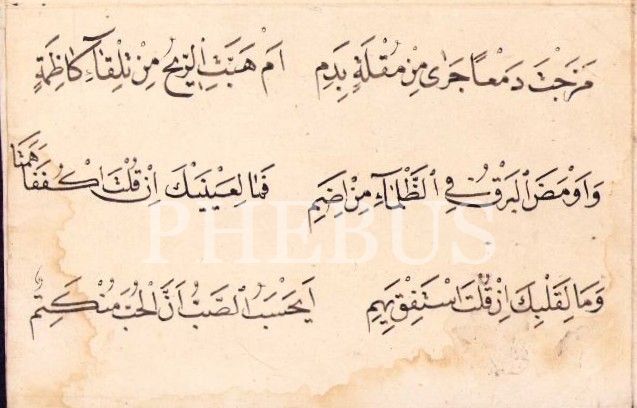 مَزَجْتَ دَمْعًا جَرٰى مِنْ مُقْلَةٍ بِدَمِ اَمْ هَبَّتِ الرِّيحُ مِنْ تِلْقَآءِ كَاظِمَةٍ
وَاَوْمَضَ الْبَرْقُ فِي الظَّلْمَآءِ مِنْ اِضَمِ فَمَا لِعَيْنَيْكَ اِنْ قُلْتَ اكْفُفَا هَمَتَا
PHEBUS
وَمَا لِقَلْبِكَ اِنْ قُلْتَ اسْتَفِقْ يَهِمِ اَيَحْسَبُ الصَّبُّ اَنَّ الْحُبَّ مُنْكَتِمٌ